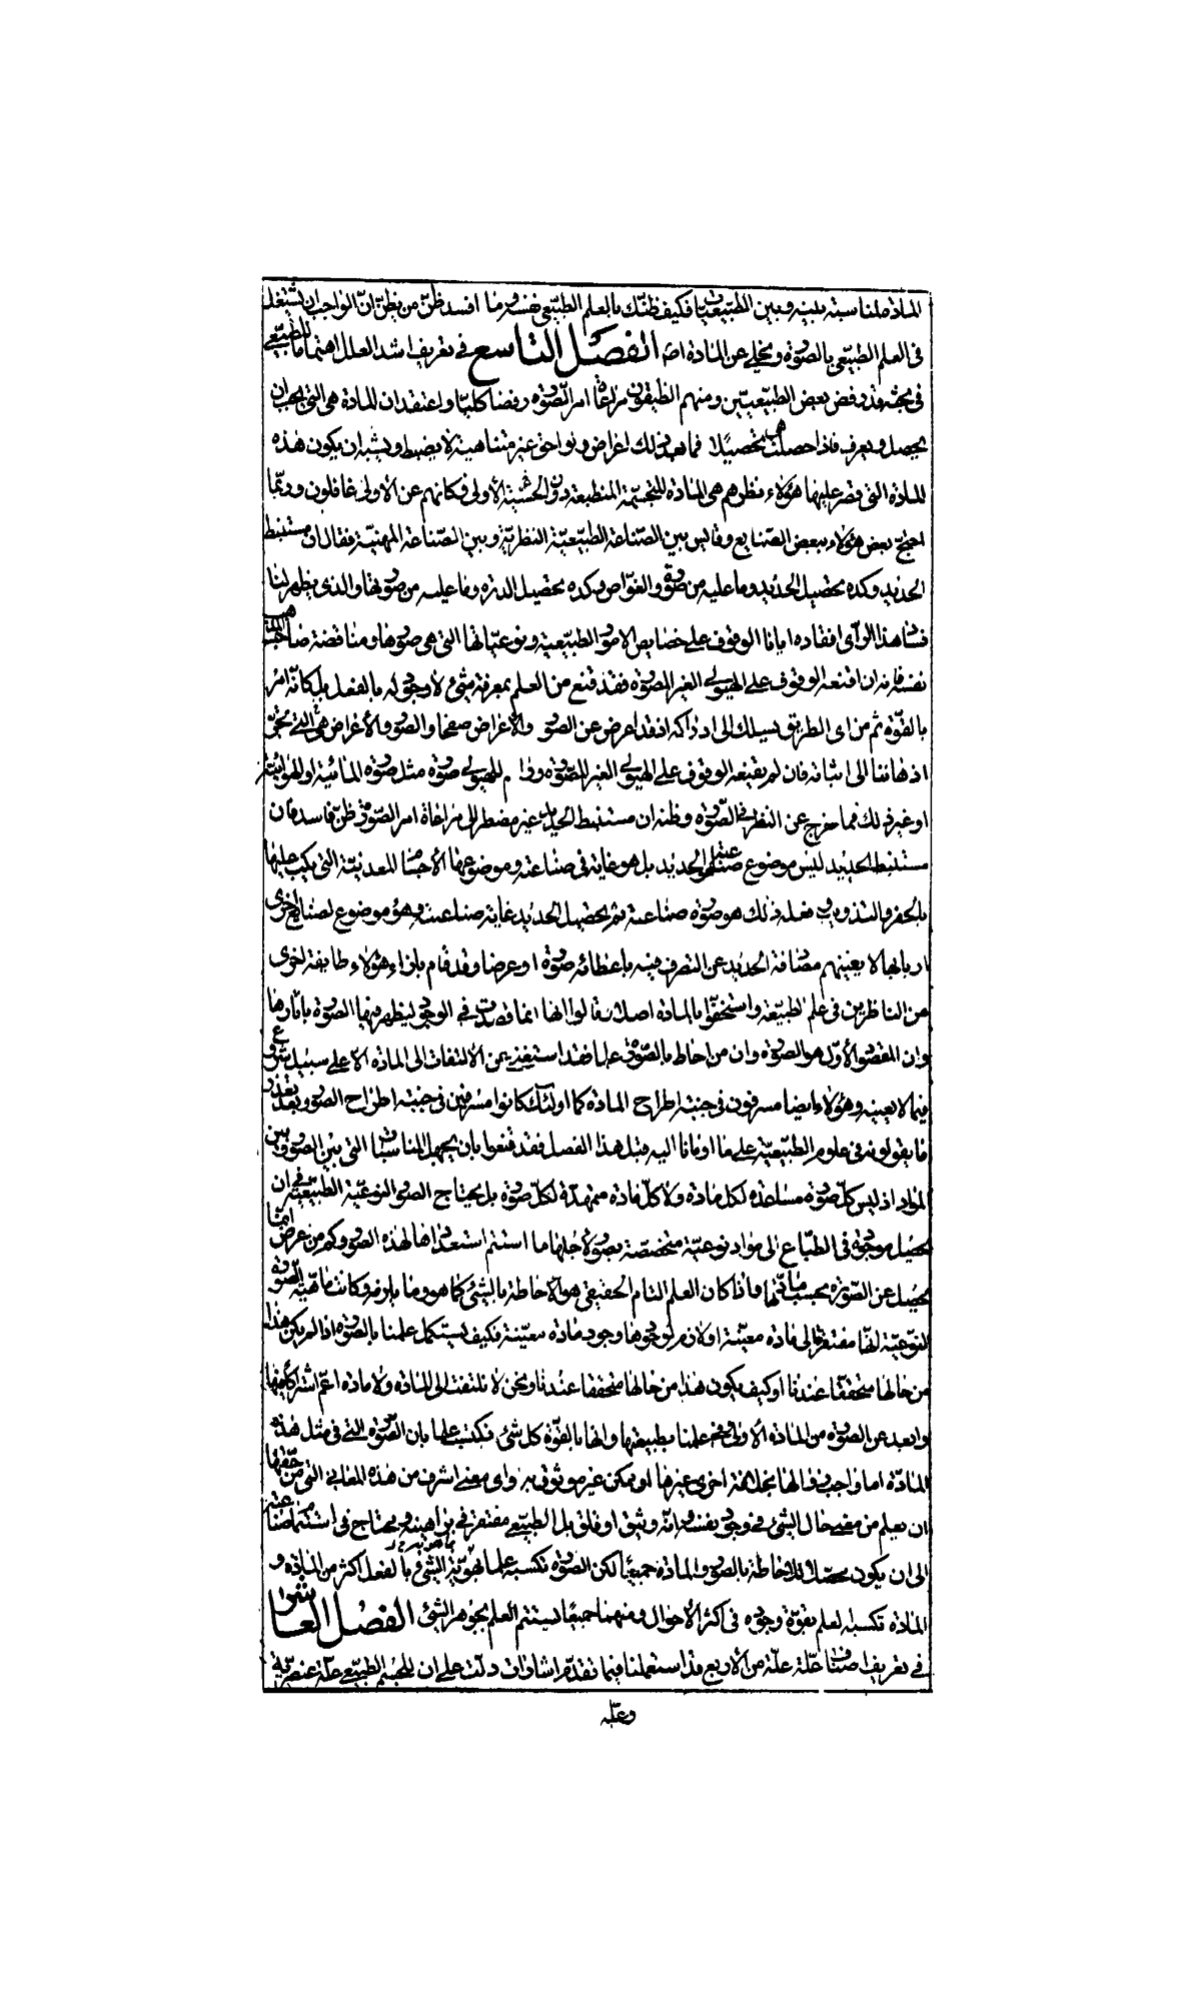 المادة لمناسبة بينه وبين الطبيعيات فكيف ظنك بالعلم الطبيعى نفسه وما افسد ظن من يظن ان الواجب ان يشتغل
فى العلم الطبيعى بالصورة ويخلى عن المادة اصلا الفصل التاسع فى تعريف اشد العلل اهتماما للطبيعى
فى بحثه قد رفض بعض الطبيعيين ومنهم انطيقون مراعاة امر الصورة رفضا كليا واعتقد ان المادة هى التى يجب ان
يحصل ويعرف فاذا حصلت تحصيلا فما بعد ذلك اعراض ولواحق غير متناهية لا يضبط ويشبه ان يكون هذه
المادة التى قصر عليها هؤلاء نظرهم هى المادة المتجسمة المنطبعة دون الاولى فكانهم عن الاولى غافلون وربما
احتج بعض هؤلاء ببعض الصنايع وقايس بين الصناعة الطبيعية النظرية وبين الصناعة المهنية فقال ان مستنبط
الحديد وكده تحصيل الحديد وما عليه من صورته والغواص وكده تحصيل الدرة وما عليه من صورتها والذى يظهر لنا
فساد هذا الرأى افقاده ايانا الوقوف على خصايص الامور الطبيعية ونوعياتها التى هى صورها ومناقضة صاحب المذهب
نفسه فانه ان اقنعه الوقوف على الهيولى الغير المصورة فقد قنع من العلم بمعرفة شئ لا وجود له بالفعل بل كانه امر
بالقوة ثم من اى الطريق يسلك الى ادراكه اذ قد اعرض عن الصور والاعراض صفحا والصور والاعراض هى التى تجر
اذهاننا الى اثباته فان لم يقنعه الوقوف على الهيولى الغير المصورة ورام للهيولى صورة مثل صورة المائية او الهوائية
او غير ذلك فما خرج عن النظر فى الصورة وظنه ان مستنبط الحديد غير مضطر الى مراعاة امر الصورة ظن فاسد فان
مستنبط الحديد ليس موضوع صناعته هو الحديد بل هو غاية فى صناعته وموضوعها الاجسام المعدنية التى يكب عليها
بالحفر والتذويب وفعله ذلك هو صورة صناعته ثم تحصيل الحديد غاية صناعته وهو موضوع لصنايع اخرى
اربابها لا يعنيهم مصادفة الحديد عن التصرف فيه باعطائه صورة او عرضا وقد قام بازاء هؤلاء طايفة اخرى
من الناظرين فى علم الطبيعة واستخفوا بالمادة اصلا وقالوا انها انما قصدت فى الوجود ليظهر فيها الصورة باثارها
وان المقصود الاول هو الصورة وان من احاط بالصورة علما فقد استغنى عن الالتفات الى المادة الا على سبيل شروع
فيما لا يعنيه وهؤلاء ايضا مسرفون فى جنبة اطراح المادة كما اولئك كانوا مسرفين فى جنبة اطراح الصورة وبعد تعذر
ما يقولونه فى علوم الطبيعية على ما اومانا اليه قبل هذا الفصل فقد قنعوا بان يجهل المناسبات التى بين الصور وبين
المواد اذ ليس كل صورة مساعدة لكل مادة ولا كل مادة متمهدة لكل صورة بل يحتاج الصور النوعية الطبيعية فى ان
تحصل موجودة فى الطباع الى مواد نوعية متخصصة بصور لاجلها ما استتم استعدادها لهذه الصور وكم من عرض انما
يحصل عن الصورة بحسب مادتها واذا كان العلم التام الحقيقى هو الاحاطة بالشئ كما هو وما يلزمه وكانت ماهية الصورة
النوعية انها مفتقرة الى مادة معينة او لازم لوجودها وجود مادة معينة فكيف يستكمل علمنا بالصورة اذا لم يكن هذا
من حالها متحققا عندنا او كيف يكون هذا من حالها متحققا عندنا ونحن لا نلتفت الى المادة ولا مادة اعم اشتراكا منها
وابعد عن الصورة من المادة الاولى وفى علمنا بطبيعتها وانها بالقوة كل شئ نكتسب علما بان الصورة التى فى مثل هذه
المادة اما واجب زوالها بخلافة اخرى غيرها او ممكن غير موثوق به واى معنى اشرف من هذه المعانى التى من حقها
ان يعلم من معنى حال الشئ فى وجود نفسه وانه وثيق او قلق بل الطبيعى مفتقر فى براهينه ومحتاج فى استتمام صناعته
الى ان يكون محصلا للاحاطة بالصورة والمادة جميعا لكن الصورة تكسبه علما بهوية الشئ بالفعل اكثر من المادة و
المادة تكسبه العلم بقوة وجوده فى اكثر الاحوال ومنهما جميعا يستتم العلم بجوهر الشئ الفصل العاشر
فى تعريف اصناف علة علة من الاربع قد استعملنا فيما تقدم اشارات دلت على ان للجسم الطبيعى علة عنصرية
وعلة